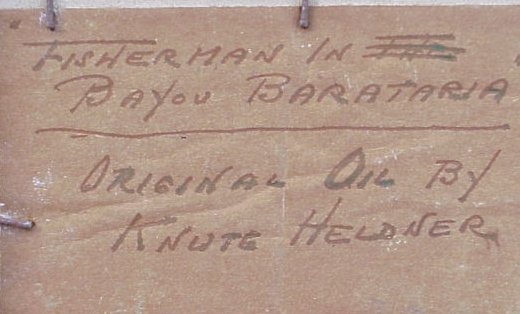 "FISHERMAN IN
BAYOU BARATARIA
ORIGINAL OIL BY
KNUTE HELDNER